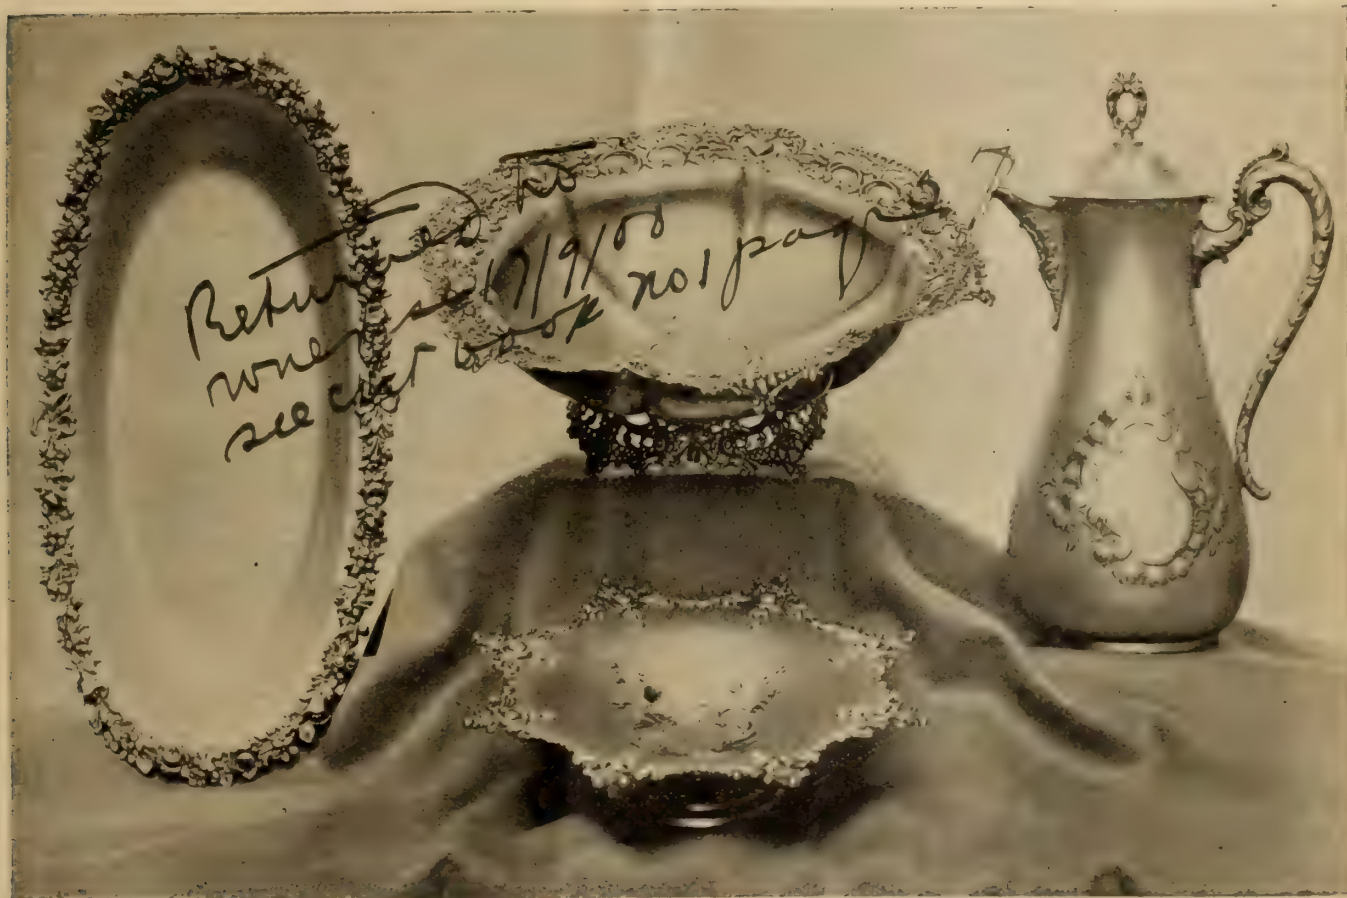 Returned to
owner see 17/9/00
see cut book no 1 page 7